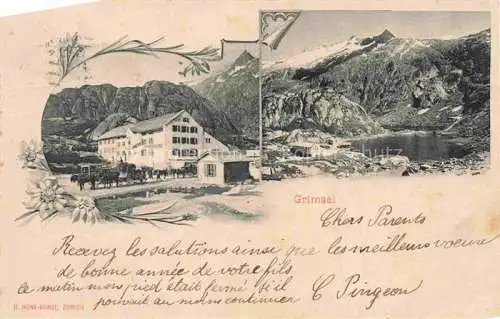 Grimsel
Chers Parents
Recevez les salutations ainsi que les meilleurs voeux
de bonne année de votre fils
ce matin mon pied était fermé s'il
pouvait au moins continuer
C Pingeon
ZÜRICH